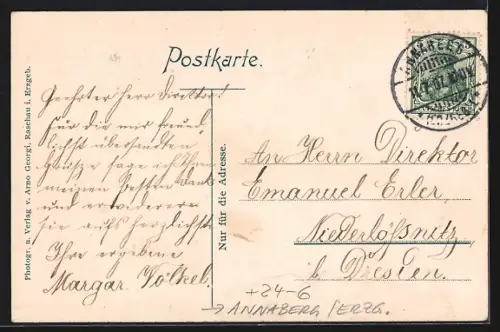 Postkarte.
Geehrter Herr Direktor!
Für die mir freund-
lichst übersandten
Grüße sage ich Ihnen
meinen besten Dank
und erwidere
sie aufs herzlichste
Ihre ergebene
Margar. Völkel.
Photogr. u. Verlag v. Arno Georgi, Raschau i. Erzgeb.
Nur für die Adresse.
An Herrn Direktor
Emanuel Erler,
Niederlößnitz
b. Dresden.
+24-6
→ ANNABERG / ERZG.